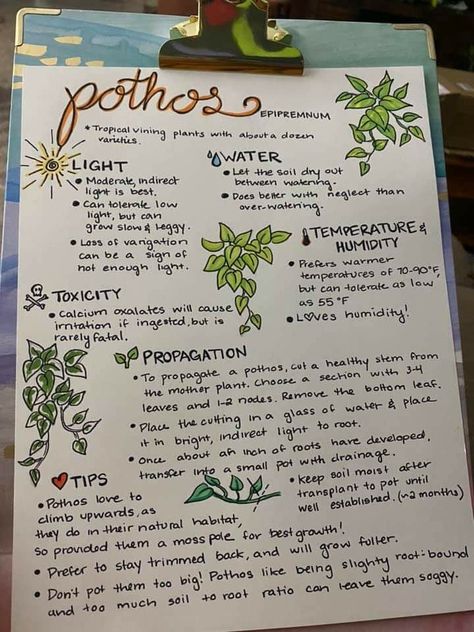 pothos
EPIPREMNUM
* Tropical vining plants with about a dozen
varieties.
LIGHT
• Moderate, indirect
light is best.
• Can tolerate low
light, but can
grow slow & leggy.
• Loss of varigation
can be a sign of
not enough light.
WATER
• Let the soil dry out
between watering.
• Does better with neglect than
over-watering.
TEMPERATURE &
HUMIDITY
• Prefers warmer
temperatures of 70-90°F,
but can tolerate as low
as 55°F
• L♡ves humidity!
TOXICITY
• Calcium oxalates will cause
irritation if ingested, but is
rarely fatal.
PROPAGATION
• To propagate a pothos, cut a healthy stem from
the mother plant. Choose a section with 3-4
leaves and 1-2 nodes. Remove the bottom leaf.
• Place the cutting in a glass of water & place
it in bright, indirect light to root.
• Once about an inch of roots have developed,
transfer into a small pot with drainage.
• Keep soil moist after
transplant to pot until
well established. (~2 months)
TIPS
• Pothos love to
climb upwards, as
they do in their natural habitat,
so provided them a moss pole for best growth!
• Prefer to stay trimmed back, and will grow fuller.
• Don't pot them too big! Pothos like being slighty root-bound
and too much soil to root ratio can leave them soggy.